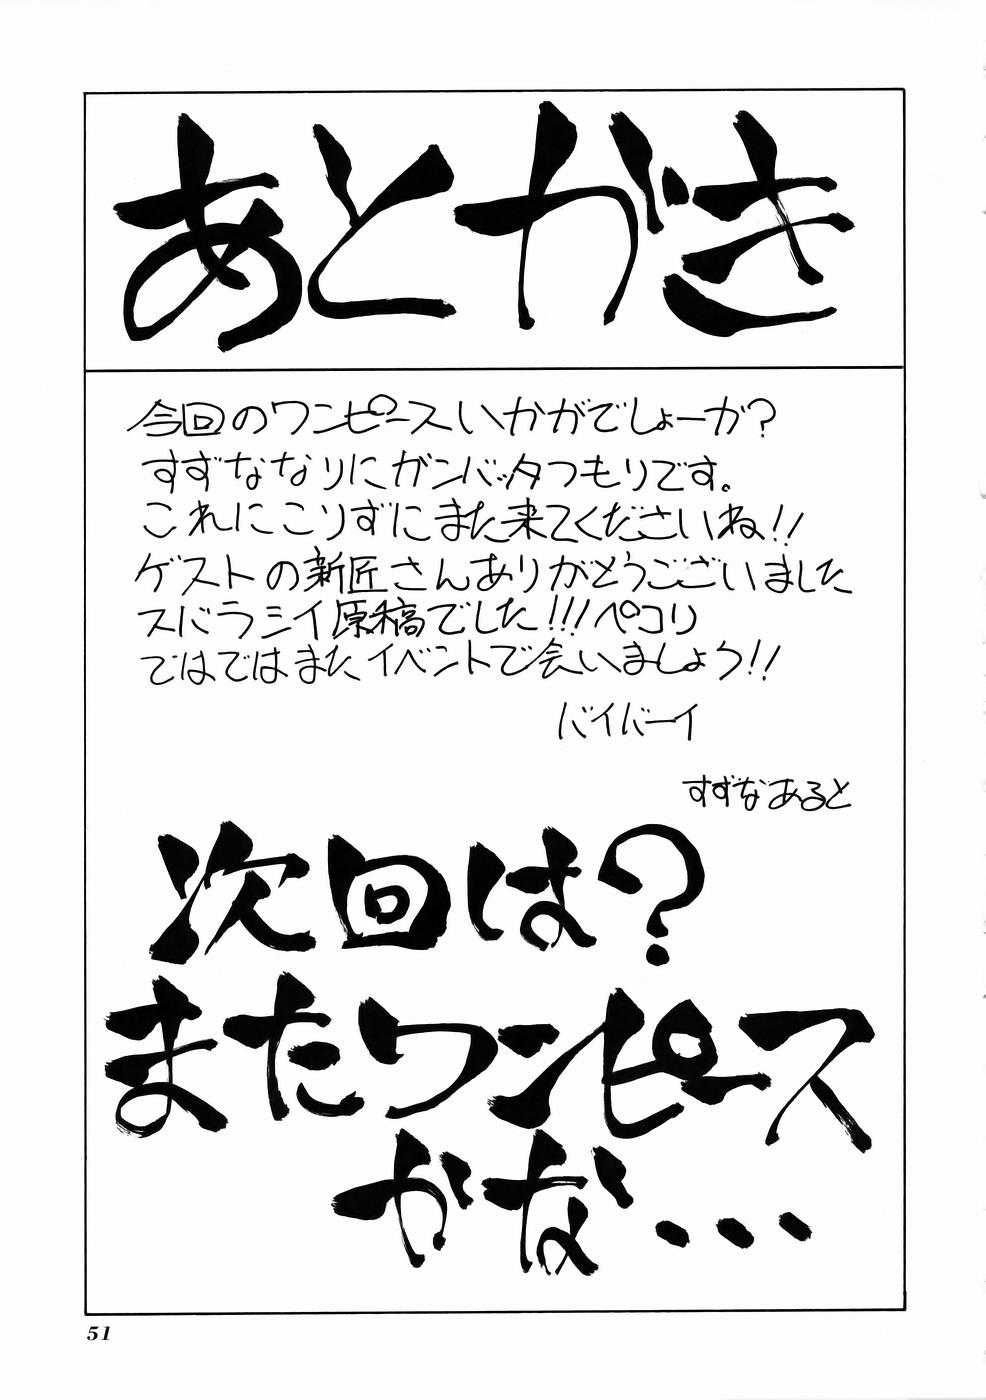 あとがき
今回のワンピースいかがでしょーか?
すずななりにガンバッタつもりです。
これにこりずにまた来てくださいね!!
ゲストの新匠さんありがとうございました
スバラシイ原稿でした!!!ペコリ
ではではまたイベントで会いましょう!!
バイバーイ
すずなあると
次回は?
またワンピース
かな・・・
51